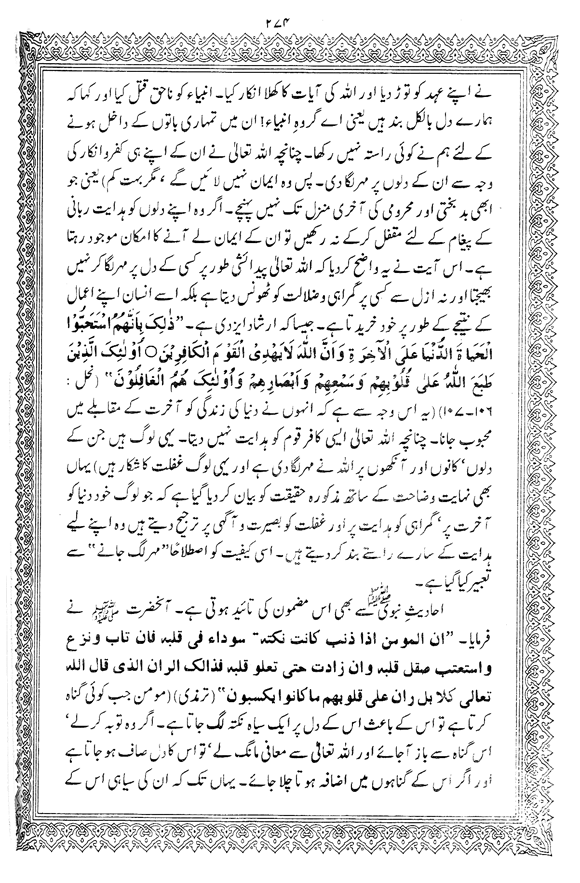 ۲۷۴
نے اپنے عہد کو توڑ دیا اور اللہ کی آیات کا کھلا انکار کیا۔ انبیاء کو ناحق قتل کیا اور کہا کہ
ہمارے دل بالکل بند ہیں یعنی اے گروہِ انبیاء! ان میں تمہاری باتوں کے داخل ہونے
کے لئے ہم نے کوئی راستہ نہیں رکھا۔ چنانچہ اللہ تعالیٰ نے ان کے اپنے ہی کفر و انکار کی
وجہ سے ان کے دلوں پر مہر لگا دی۔ پس وہ ایمان نہیں لائیں گے ، مگر بہت کم) یعنی جو
ابھی بد بختی اور محرومی کی آخری منزل تک نہیں پہنچے۔ اگر وہ اپنے دلوں کو ہدایت ربانی
کے پیغام کے لئے مقفل کر کے نہ رکھیں تو ان کے ایمان لے آنے کا امکان موجود رہتا
ہے۔ اس آیت نے یہ واضح کر دیا کہ اللہ تعالیٰ پیدائشی طور پر کسی کے دل پر مہر لگا کر نہیں
بھیجتا اور نہ ازل سے کسی پر گمراہی و ضلالت کو ٹھونس دیتا ہے بلکہ اسے انسان اپنے اعمال
کے نتیجے کے طور پر خود خریدتا ہے۔ جیسا کہ ارشاد ایزدی ہے۔ ”ذٰلِکَ بِاَنَّهُمُ اسْتَحَبُّوا
الْحَیَاةَ الدُّنْیَا عَلَی الْاٰخِرَةِ وَاَنَّ اللّٰہَ لَا یَهْدِی الْقَوْمَ الْکَافِرِیْنَ ○ اُوْلٰئِکَ الَّذِیْنَ
طَبَعَ اللّٰہُ عَلٰی قُلُوْبِهِمْ وَسَمْعِهِمْ وَاَبْصَارِهِمْ وَاُوْلٰئِکَ هُمُ الْغَافِلُوْنَ“ (نحل :
۱۰۶-۱۰۷) (یہ اس وجہ سے ہے کہ انہوں نے دنیا کی زندگی کو آخرت کے مقابلے میں
محبوب جانا۔ چنانچہ اللہ تعالیٰ ایسی کافر قوم کو ہدایت نہیں دیتا۔ یہی لوگ ہیں جن کے
دلوں‘ کانوں اور آنکھوں پر اللہ نے مہر لگا دی ہے اور یہی لوگ غفلت کا شکار ہیں) یہاں
بھی نہایت وضاحت کے ساتھ مذکورہ حقیقت کو بیان کر دیا گیا ہے کہ جو لوگ خود دنیا کو
آخرت پر‘ گمراہی کو ہدایت پر اور غفلت کو بصیرت و آگہی پر ترجیح دیتے ہیں وہ اپنے لیے
ہدایت کے سارے راستے بند کر دیتے ہیں۔ اسی کیفیت کو اصطلاحاً ”مہر لگ جانے“ سے
تعبیر کیا گیا ہے۔
احادیثِ نبوی ﷺ سے بھی اس مضمون کی تائید ہوتی ہے۔ آنحضرت ﷺ نے
فرمایا۔ ”ان المومن اذا ذنب کانت نکتہ سوداء فی قلبہ فان تاب ونزع
واستعتب صقل قلبہ وان زادت حتی تعلو قلبہ فذالک الران الذی قال اللہ
تعالی کلا بل ران علی قلوبهم ماکانوا یکسبون“ (ترمذی) (مومن جب کوئی گناہ
کرتا ہے تو اس کے باعث اس کے دل پر ایک سیاہ نکتہ لگ جاتا ہے۔ اگر وہ توبہ کر لے‘
اس گناہ سے باز آ جائے اور اللہ تعالیٰ سے معافی مانگ لے‘ تو اس کا دل صاف ہو جاتا ہے
اور اگر اس کے گناہوں میں اضافہ ہوتا چلا جائے۔ یہاں تک کہ ان کی سیاہی اس کے